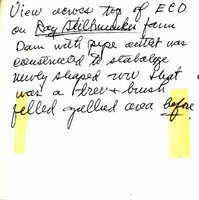 View across top of ECD
on Roy Stillmunkes farm
Dam with pipe outlet was
constructed to stabalize
newly shaped row that
was a tree & brush
filled gullied area before.